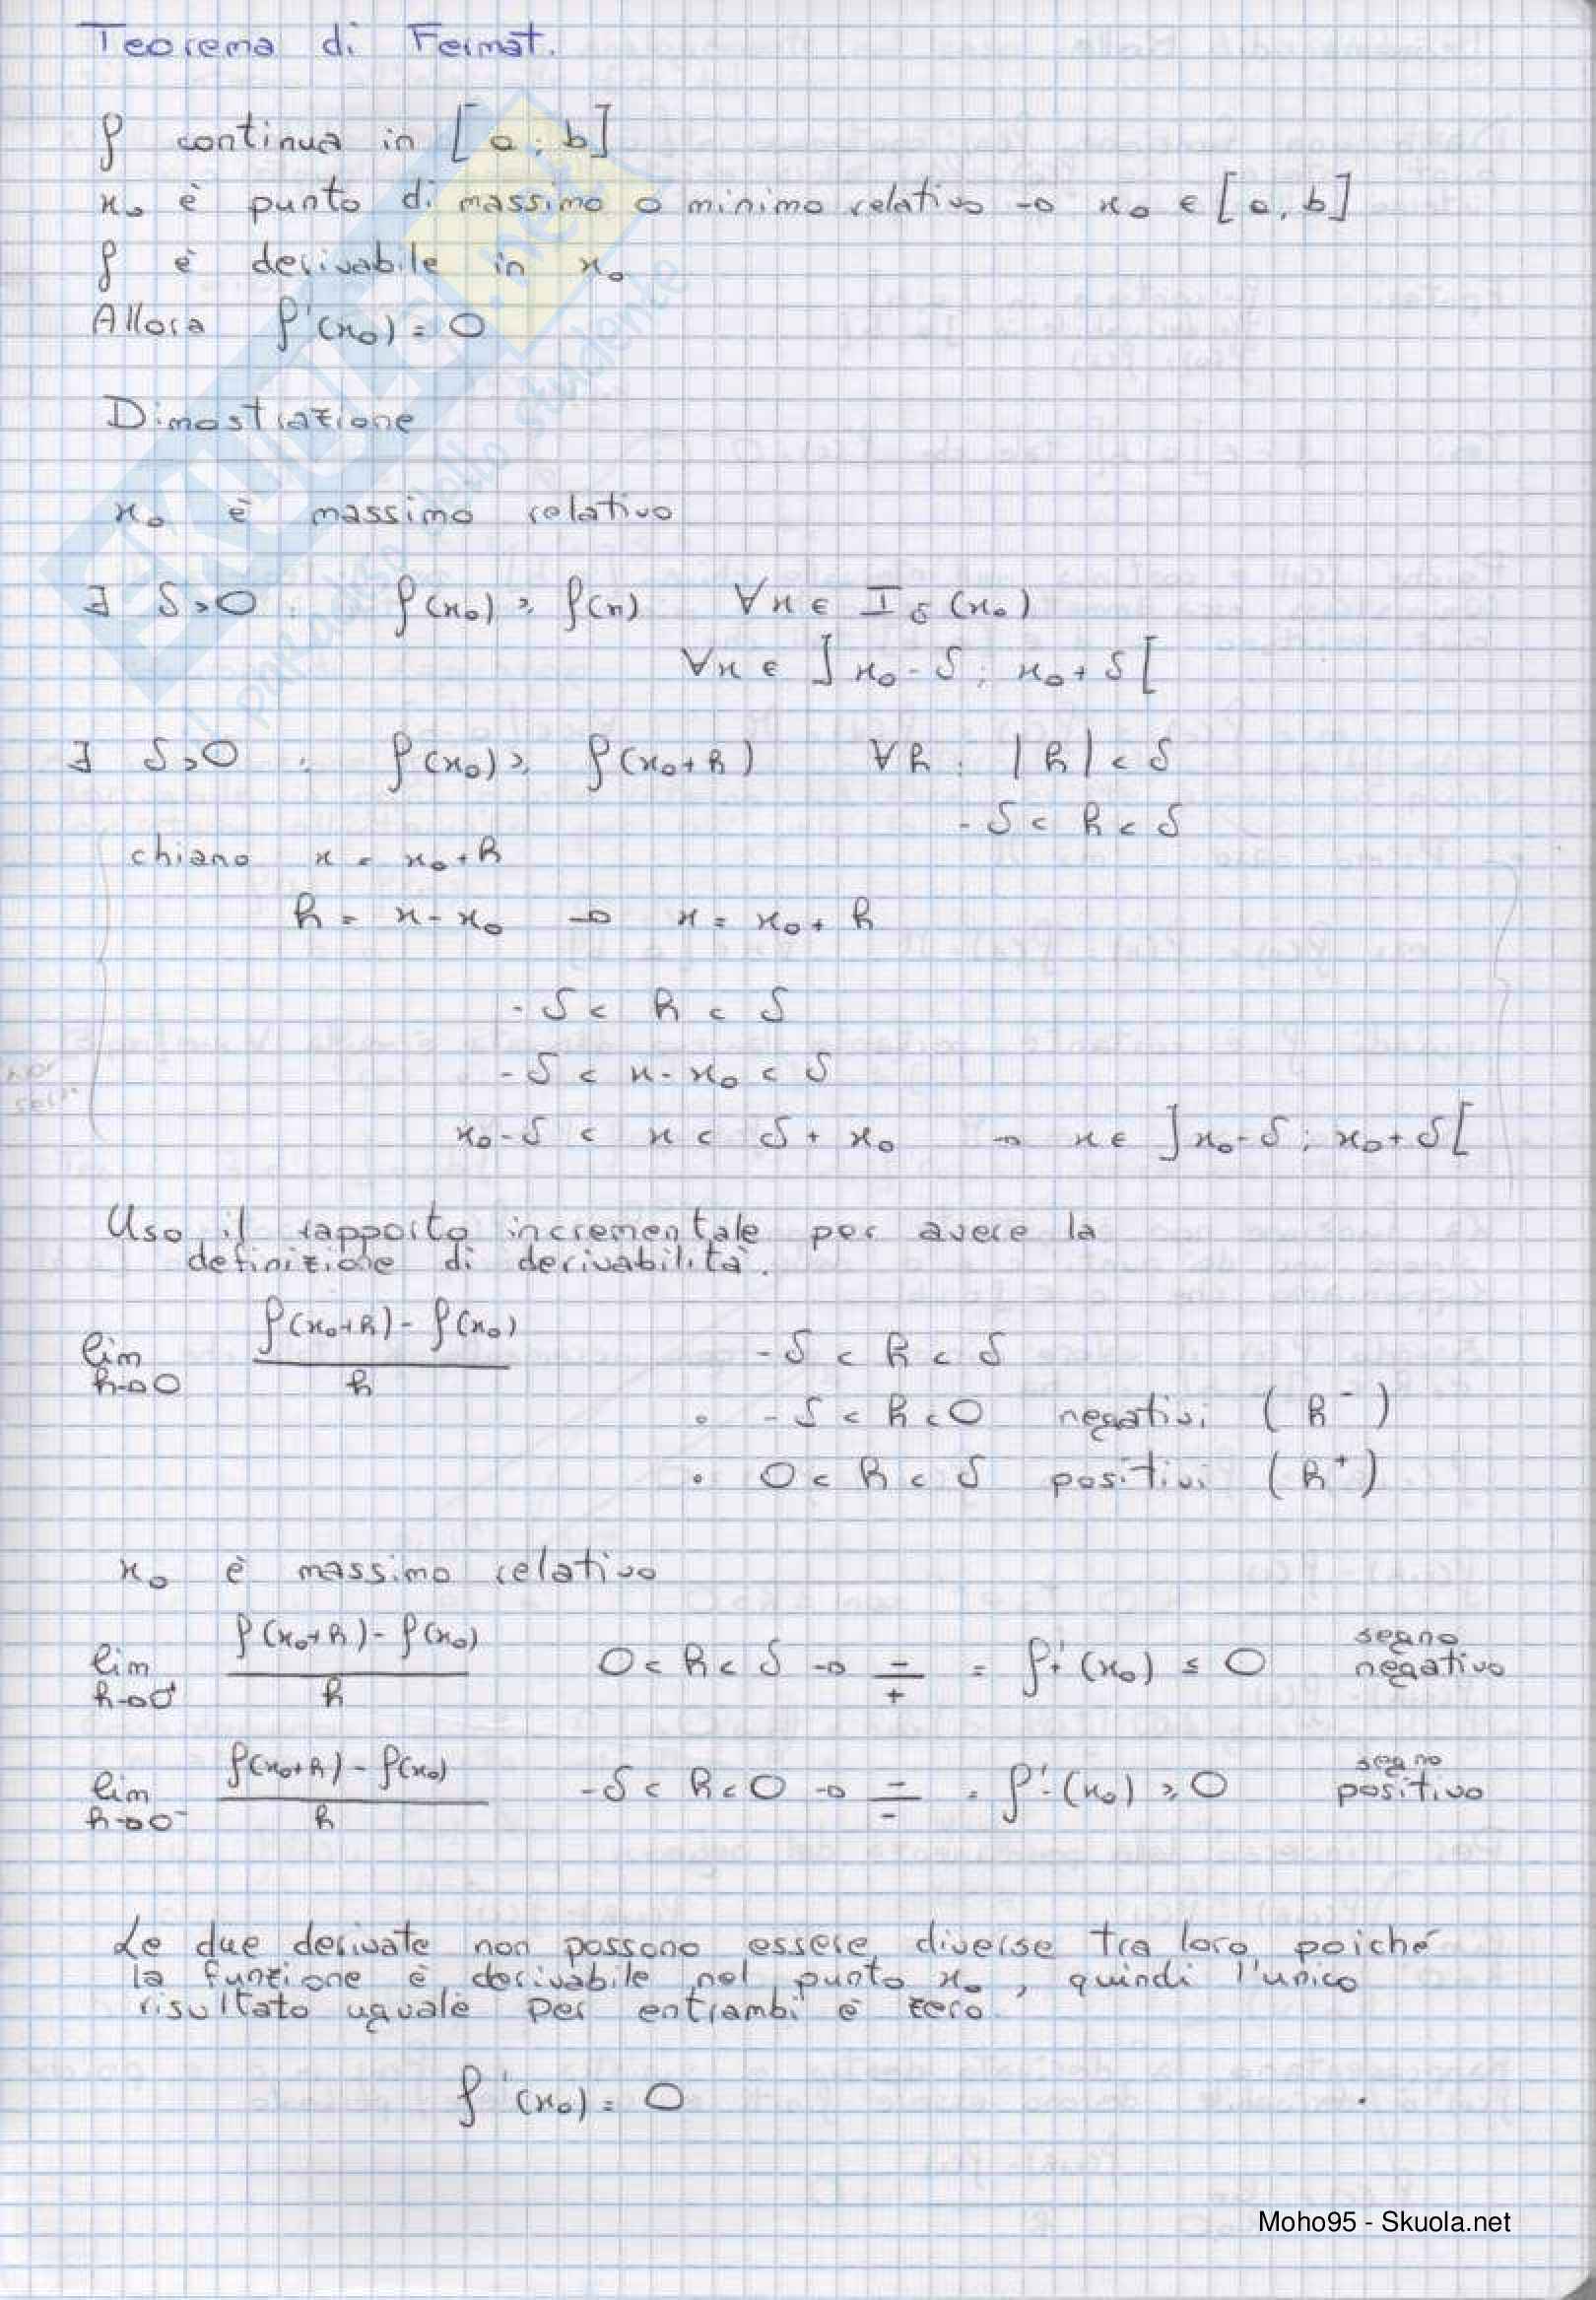 Teorema di Fermat.
f continua in [a ; b]
x₀ è punto di massimo o minimo relativo → x₀ ∈ [a, b]
f è derivabile in x₀
Allora f'(x₀) = 0
Dimostrazione
x₀ è massimo relativo
∃ δ>0 : f(x₀) ≥ f(x) ∀x ∈ I δ (x₀)
∀x ∈ ]x₀ - δ ; x₀ + δ[
∃ δ>0 : f(x₀) ≥ f(x₀+h) ∀h : |h| < δ
-δ < h < δ
chiamo x = x₀ + h
h = x - x₀ → x = x₀ + h
-δ < h < δ
-δ < x - x₀ < δ
x₀ - δ < x < δ + x₀ → x ∈ ]x₀ - δ ; x₀ + δ[
Uso il rapporto incrementale per avere la
definizione di derivabilità.
lim h→0 (f(x₀+h) - f(x₀)) / h -δ < h < δ
• -δ < h < 0 negativi (h⁻)
• 0 < h < δ positivi (h⁺)
x₀ è massimo relativo
lim h→0⁺ (f(x₀+h) - f(x₀)) / h 0 < h < δ → -/+ = f'+(x₀) ≤ 0 segno negativo
lim h→0⁻ (f(x₀+h) - f(x₀)) / h -δ < h < 0 → -/- = f'-(x₀) ≥ 0 segno positivo
Le due derivate non possono essere diverse tra loro poiché
la funzione è derivabile nel punto x₀, quindi l'unico
risultato uguale per entrambi è zero.
f'(x₀) = 0
SKUOLA.net
il paradiso dello studente
Moho95 - Skuola.net